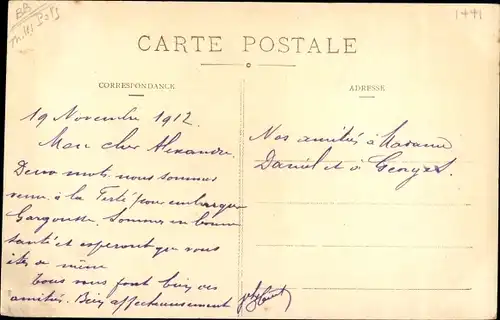 BB
1441
CARTE POSTALE
CORRESPONDANCE
ADRESSE
19 Novembre 1912.
Mon cher Alexandre.
Deux mots. nous sommes
venu à la Ferté pour embarquer
Gargousse. Sommes en bonne
santé et esperont que vous
êtes de même
Tous vous font bien des
amitiés. Bien affectueusement
Nos amitiés à Madame
Daniel et à Georges.